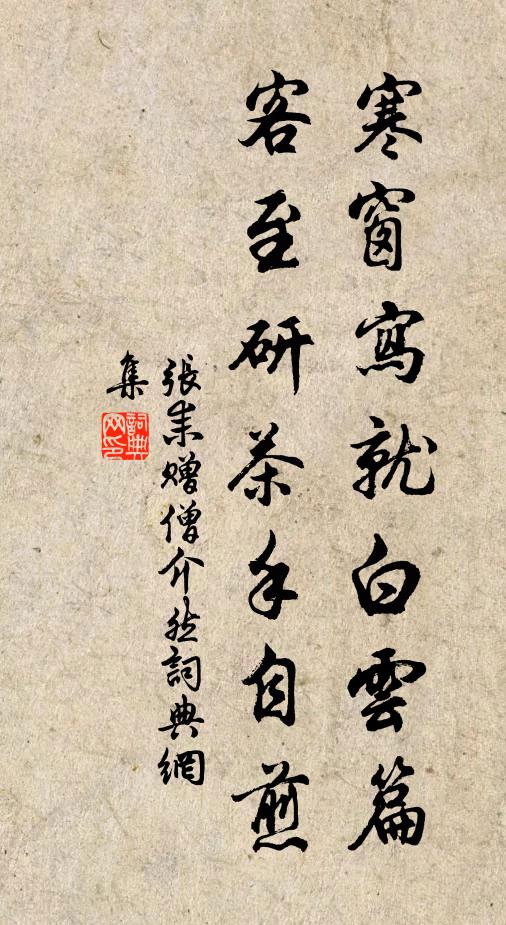 寒窗寫就白雲篇
客至研茶手自煎
張耒赠僧介然詞典網
集
詞典
网印